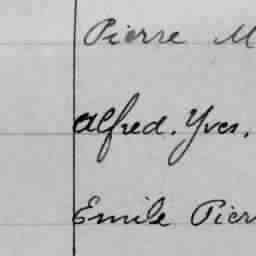 Pierre M
Alfred. Yves.
Emile Pier